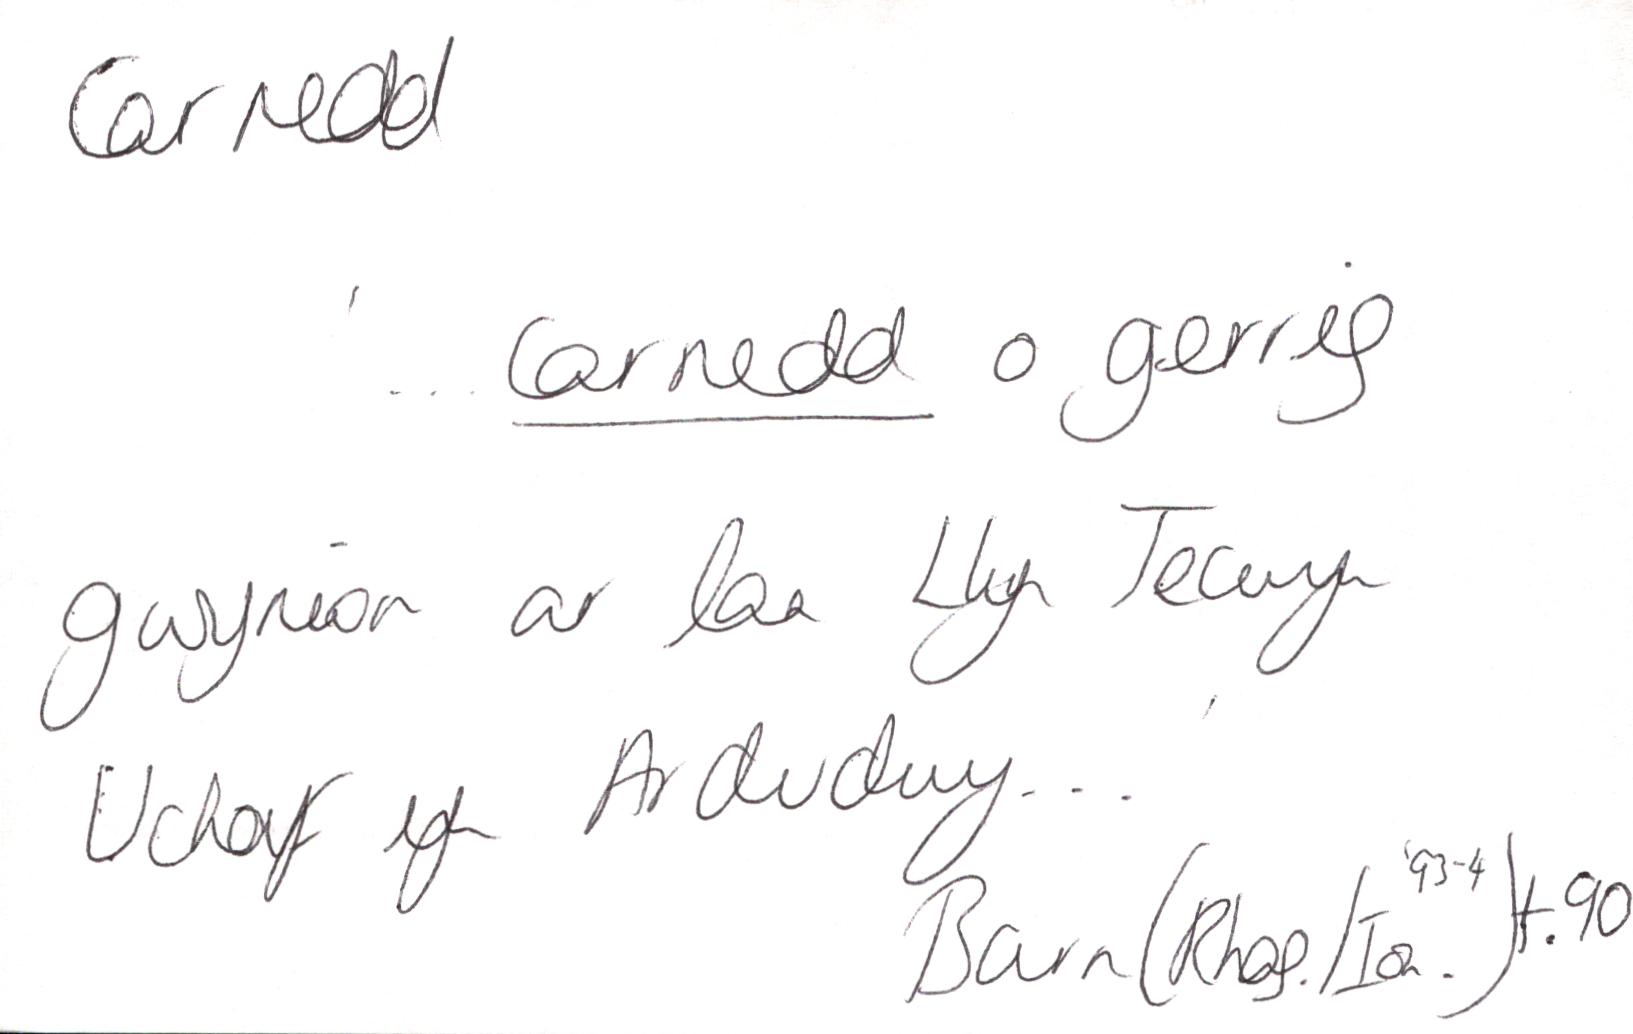 Carnedd
'... Carnedd o gerrig
gwynion ar lan Llyn Tecwyn
Uchaf yn Ardudwy...'
Barn (Rhag./Ion. '93-4) t.90